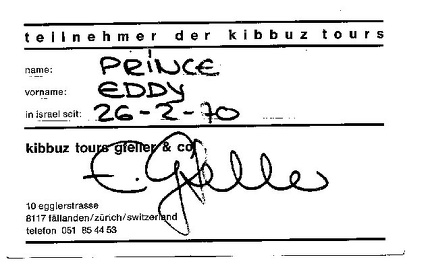 teilnehmer der kibbuz tours
name: PRINCE
vorname: EDDY
in israel seit: 26-2-70
kibbuz tours gfeller & co,
E. Gfeller
10 egglerstrasse
8117 fällanden/zürich/switzerland
telefon 051 85 44 53